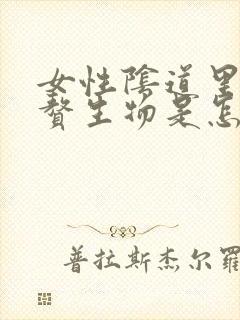 女性陰道里
贅生物是怎
普拉斯杰尔羅